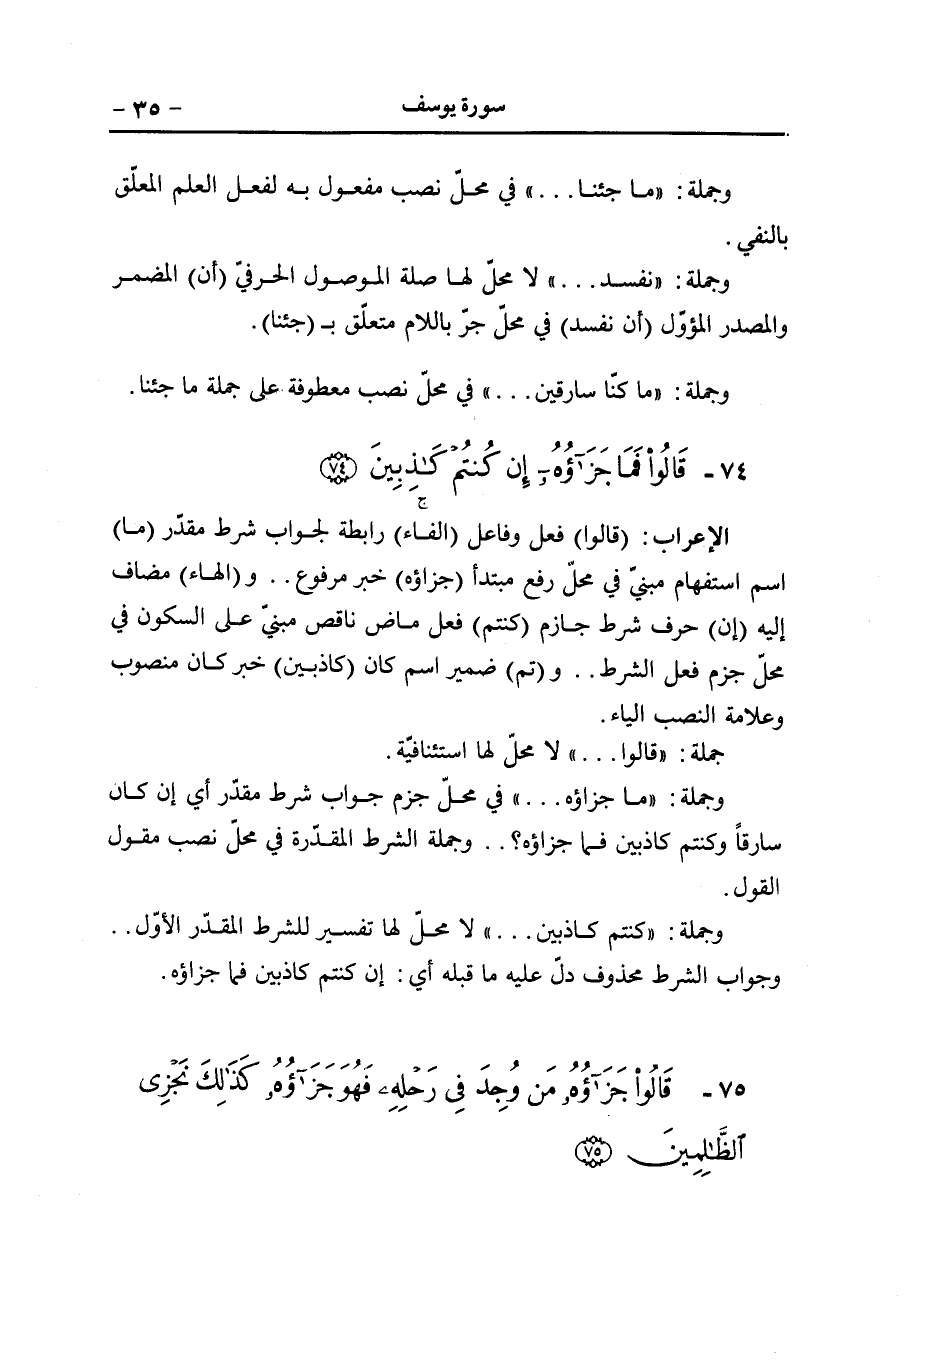 سورة يوسف - ٣٥ -
وجملة: «ما جئنا...» في محلّ نصب مفعول به لفعل العلم المعلّق
بالنفي.
وجملة: «نفسد...» لا محلّ لها صلة الموصول الحرفيّ (أن) المضمر
والمصدر المؤوّل (أن نفسد) في محلّ جرّ باللام متعلّق بـ (جئنا).
وجملة: «ما كنّا سارقين...» في محلّ نصب معطوفة على جملة ما جئنا.
٧٤ - قَالُواْ فَمَا جَزَٰٓؤُهُۥٓ إِن كُنتُمْ كَٰذِبِينَ ﴿٧٤﴾
ج
الإعراب: (قالوا) فعل وفاعل (الفاء) رابطة لجواب شرط مقدّر (ما)
اسم استفهام مبنيّ في محلّ رفع مبتدأ (جزاؤه) خبر مرفوع.. و (الهاء) مضاف
إليه (إن) حرف شرط جازم (كنتم) فعل ماض ناقص مبنيّ على السكون في
محلّ جزم فعل الشرط.. و (تم) ضمير اسم كان (كاذبين) خبر كان منصوب
وعلامة النصب الياء.
جملة: «قالوا...» لا محلّ لها استئنافيّة.
وجملة: «ما جزاؤه...» في محلّ جزم جواب شرط مقدّر أي إن كان
سارقاً وكنتم كاذبين فما جزاؤه؟.. وجملة الشرط المقدّرة في محلّ نصب مقول
القول.
وجملة: «كنتم كاذبين...» لا محلّ لها تفسير للشرط المقدّر الأوّل..
وجواب الشرط محذوف دلّ عليه ما قبله أي: إن كنتم كاذبين فما جزاؤه.
٧٥ - قَالُواْ جَزَٰٓؤُهُۥ مَن وُجِدَ فِى رَحْلِهِۦ فَهُوَ جَزَٰٓؤُهُۥ كَذَٰلِكَ نَجْزِى
ٱلظَّٰلِمِينَ ﴿٧٥﴾